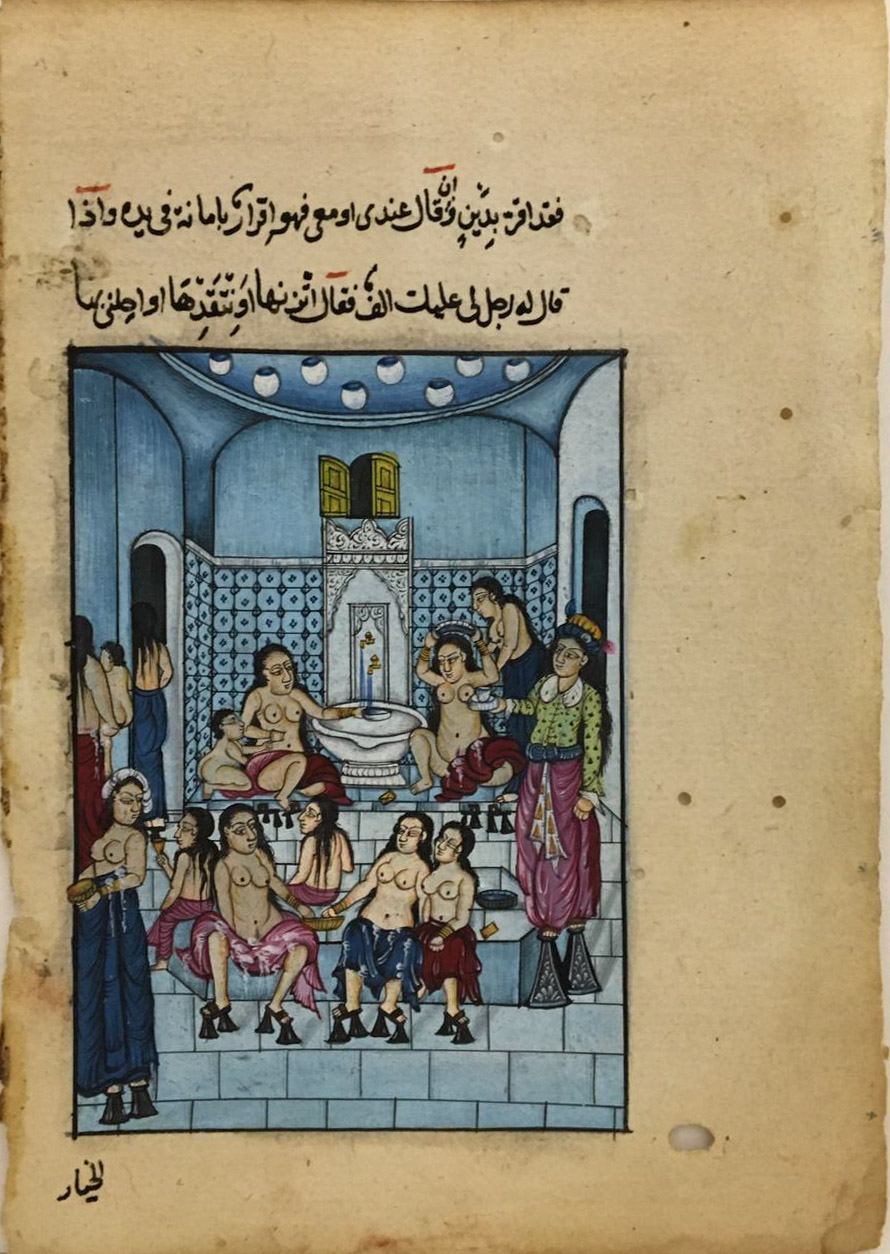 فقد اقرّ بِدَينٍ وَاِنْ قَال عندى او معى فهو اِقرار بامانة فى يده واذا
قال له رجل لى عليك الف فقال اتزنها اَوِنْتَقِدْهَا او اجلنى بها
الخيار